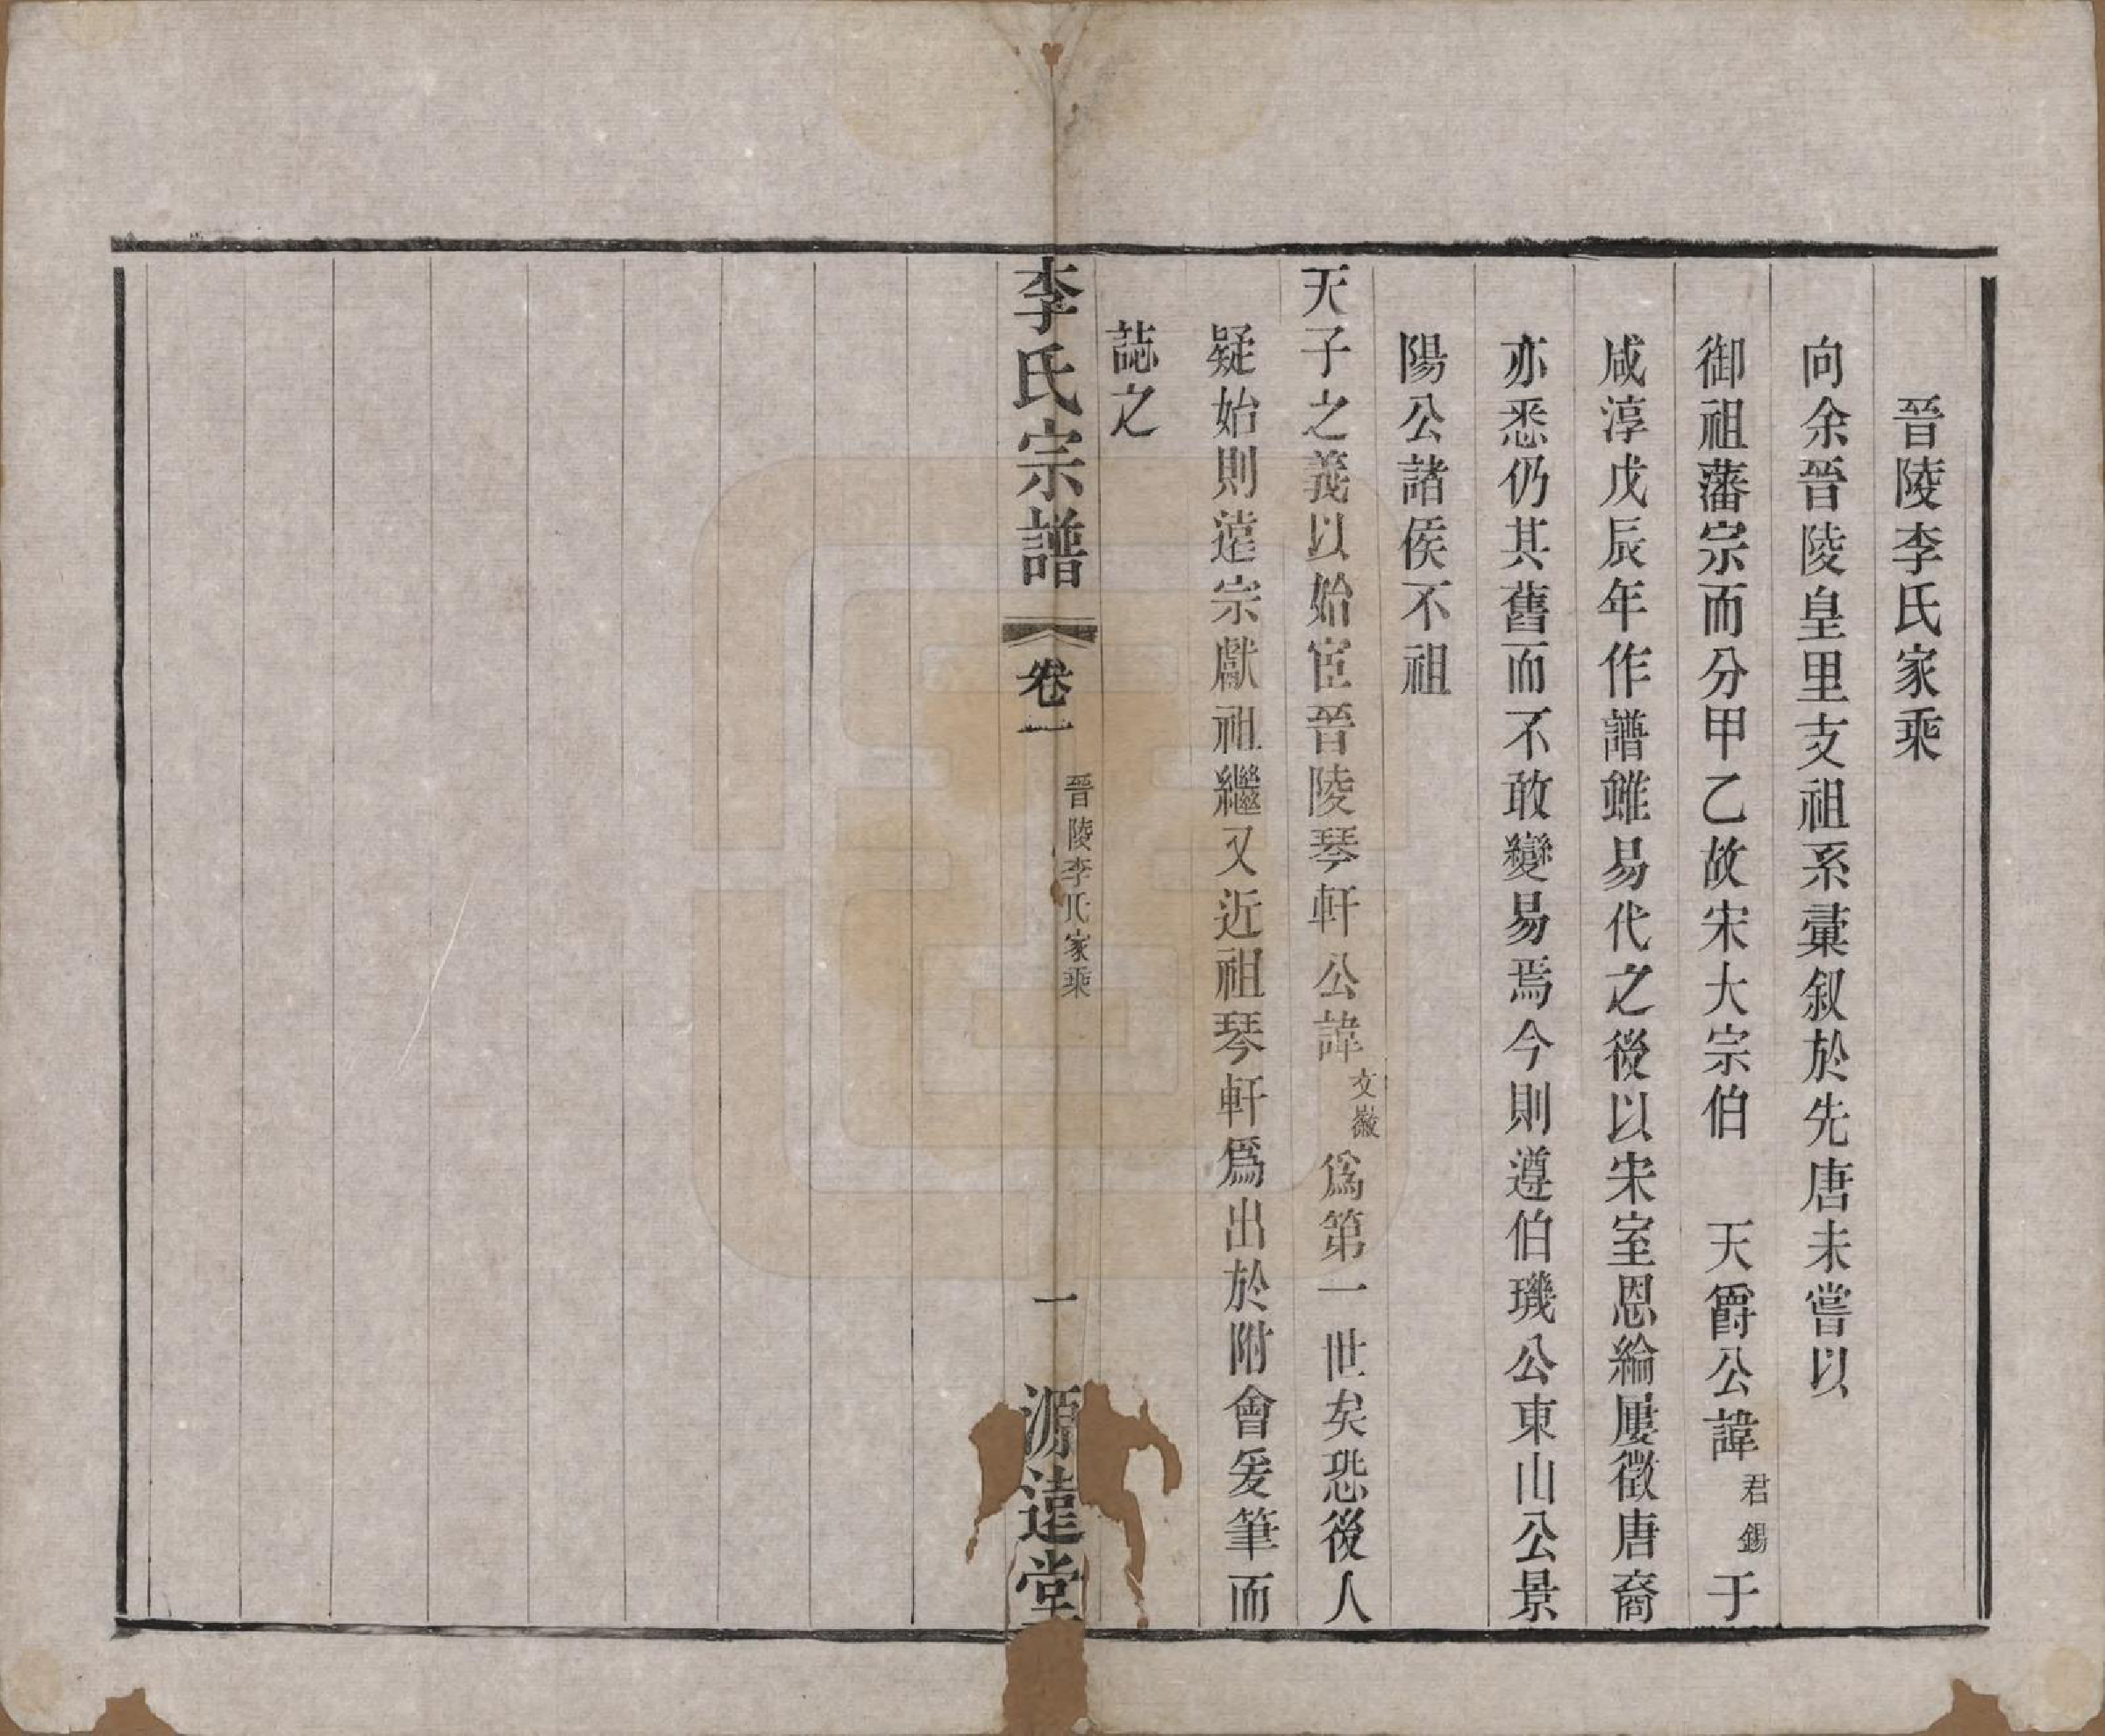 晉陵李氏家乘
向余晉陵皇里支祖系彙叙於先唐未嘗以
御祖藩宗而分甲乙故宋大宗伯　天爵公諱君錫于
咸淳戊辰年作譜雖易代之後以宋室恩綸屢徵唐裔
亦悉仍其舊而不敢變易焉今則遵伯璣公東山公景
陽公諸侯不祖
天子之義以始宦晉陵琴軒公諱文徽為第一世矣恐後人
疑始則遠宗獻祖繼又近祖琴軒爲出於附會爰筆而
誌之
李氏宗譜
卷一
晉陵李氏家乘
一
源遠堂